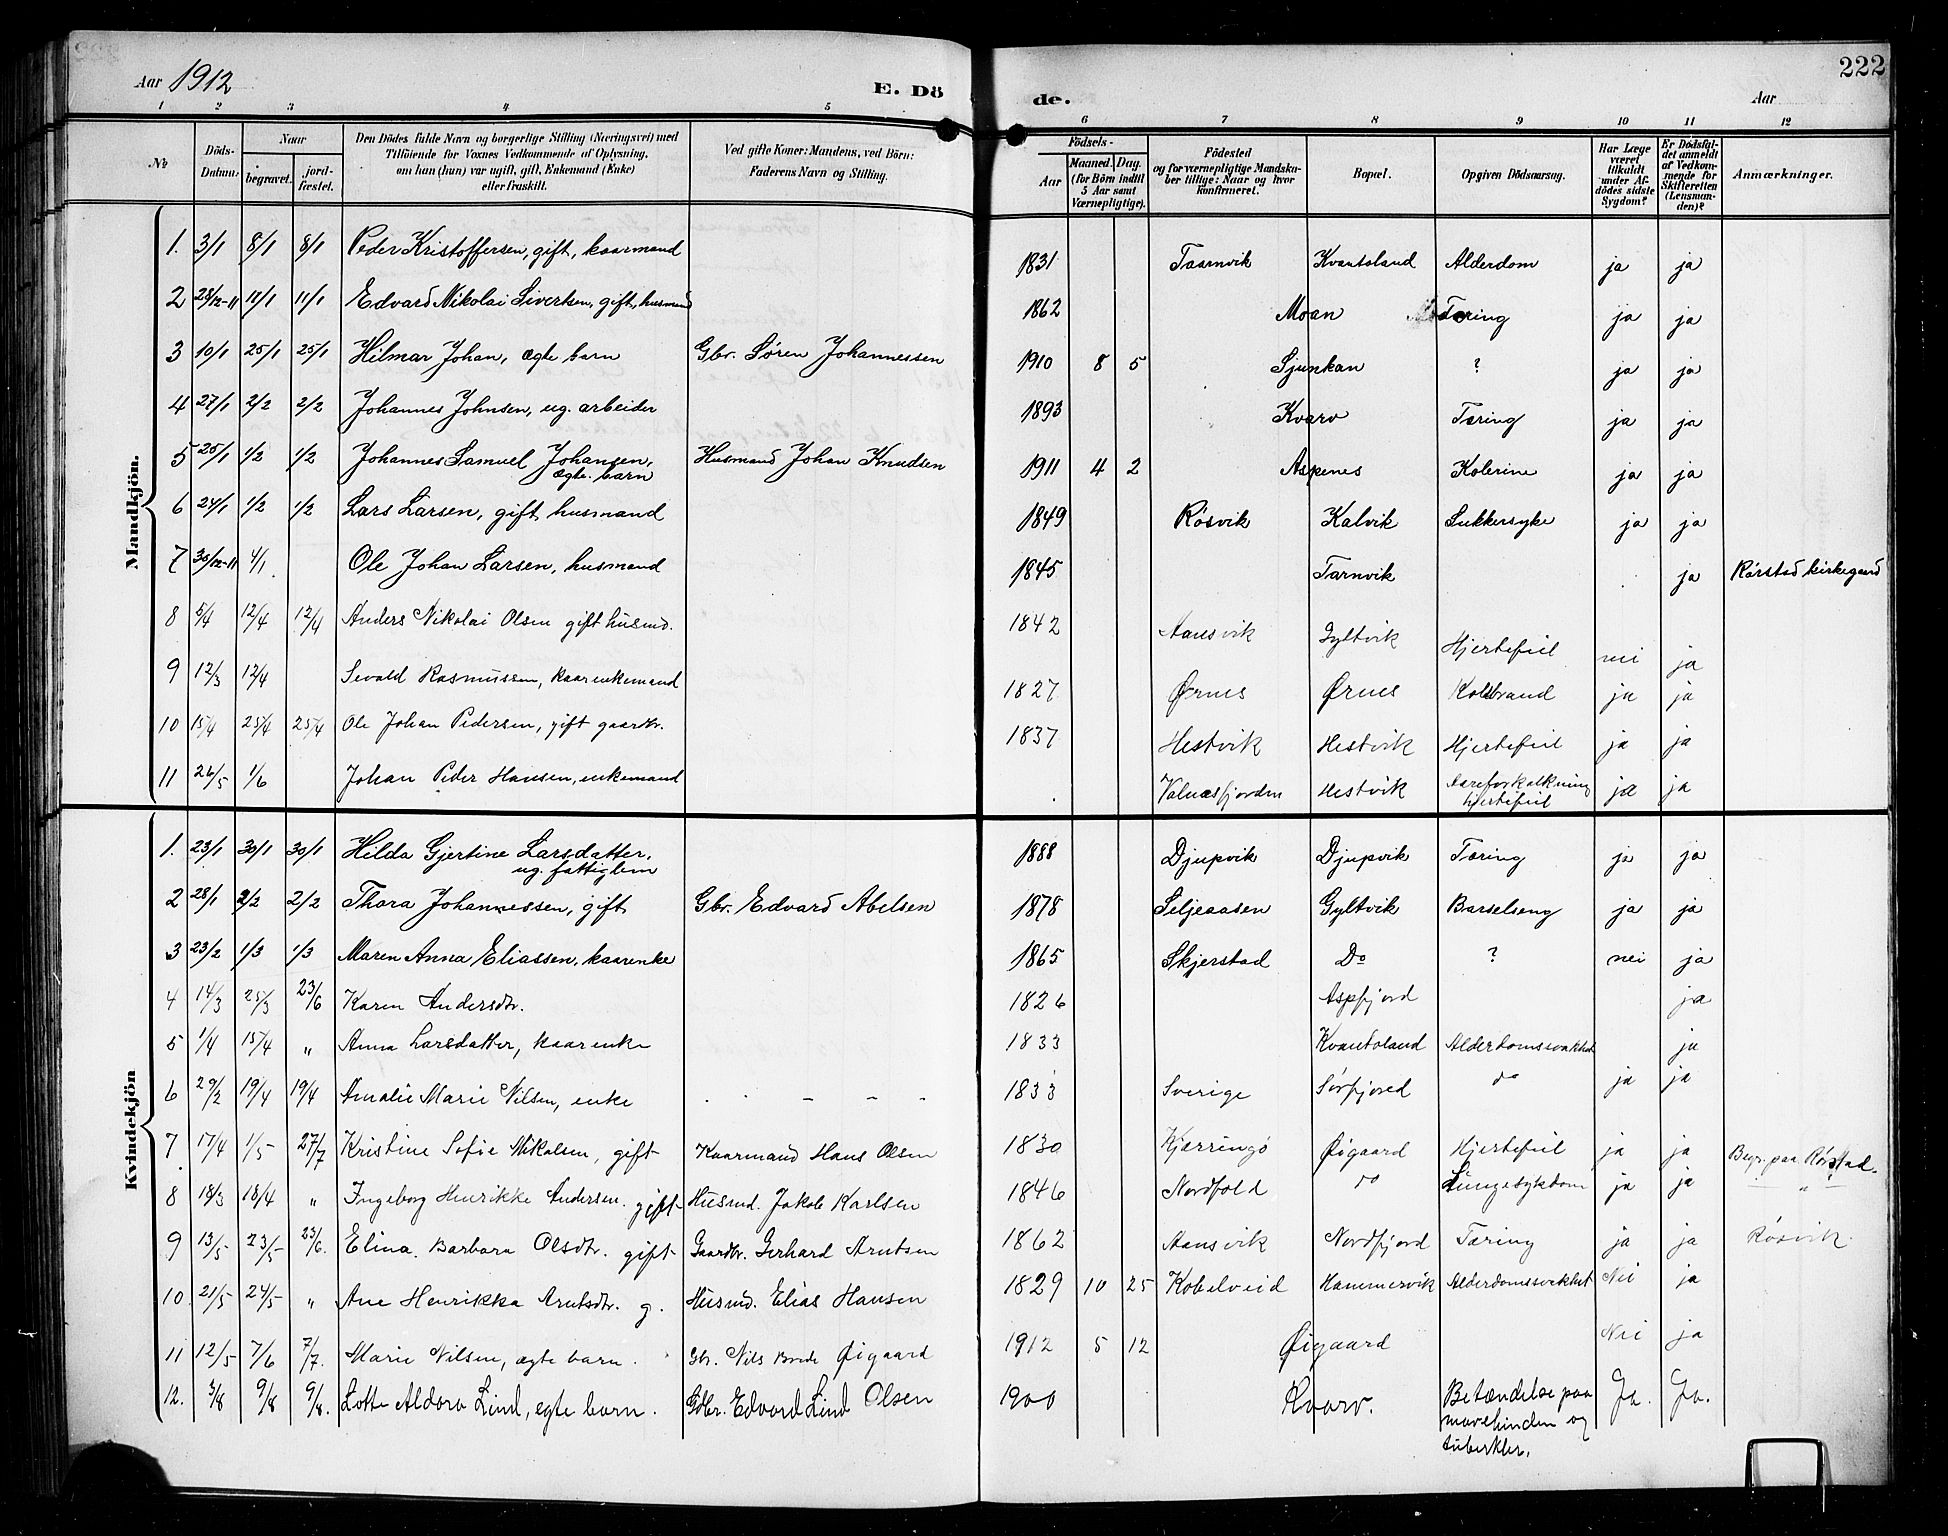 Aar 1912
E. Dö
de.
Aar
222
1 2 3 4 5 6 7 8 9 10 11 12
No
Döds-Datum.
Naar
begravet.
jordfæstet.
Den Dödes fulde Navn og borgerlige Stilling (Næringsvei) med
Tilföiende for Voxnes Vedkommende af Oplysning,
om han (hun) var ugift, gift, Enkemand (Enke)
eller fraskilt.
Ved gifte Koner: Mandens, ved Börn:
Faderens Navn og Stilling.
Födsels-
Aar
Maaned. Dag.
(for Börn indtil
5 Aar samt
Værnepligtige).
Födested
og for værnepligtige Mandskaber tillige: Naar og hvor
konfirmeret.
Bopæl.
Opgiven Dödsaarsag.
Har Læge
været
tilkaldt
under Afdödes sidste
Sygdom?
Er Dödsfaldet anmeldt
af Vedkommende for
Skifteretten
(Lensmanden)?
Anmærkninger.
Mandkjön.
1. 3/1 8/1 8/1 Peder Kristoffersen, gift, kaarmand 1831 Taarnvik Kvantoland Alderdom ja ja
2 28/12-11 11/1 11/1 Edvard Nikolai Sivertsen, gift, husmand 1862 Moan Tæring ja ja
3 10/1 25/1 25/1 Hilmar Johan, ægte barn Gbr. Søren Johannessen 1910 8 5 Sjunkan ? ja ja
4 27/1 2/2 2/2 Johannes Johnsen, ug. arbeider 1893 Kvarv Tæring ja ja
5 25/1 1/2 1/2 Johannes Samuel Johansen, ægte barn Husmand Johan Knudsen 1911 4 2 Aspenes Kolerine ja ja
6 24/1 1/2 1/2 Lars Larsen, gift, husmand 1849 Røsvik Kalvik Sukkersyke ja ja
7 30/12-11 4/1. Ole Johan Larsen, husmand 1845 Tarnvik ja Rørstad kirkegaard
8 5/4 12/4 12/4 Anders Nikolai Olsen gift husmd. 1842 Aansvik Gyltvik Hjertefeil nei ja
9 12/3 12/4 Sevald Rasmussen, kaarenkemand 1827 Ørnes Ørnes Koldbrand ja ja
10 15/4 25/4 25/4 Ole Johan Pedersen, gift gaardbr. 1837 Hestvik Hestvik Hjertefeil ja ja
11 26/5 1/6 Johan Peder Hansen, enkemand Valnesfjorden Hestvik Aareforkalkning Hjertefeil ja ja
Kvindekjön
1. 23/1 30/1 30/1 Hilda Gjertine Larsdatter, ug. fattiglem 1888 Djupvik Djupvik Tæring ja ja
2 28/1 2/2 2/2 Thora Johannessen, gift Gbr. Edvard Abelsen 1878 Seljeaasen Gyltvik Barselseng ja ja
3 23/2 1/3 1/3 Maren Anna Eliassen, kaarenke 1865 Skjerstad Do ? nei ja
4 14/3 25/3 23/6 Karen Andersdtr. 1826 Aspfjord ja
5 1/4 15/4 " Anna Larsdatter, kaarenke 1833 Kvantoland Alderdomssvakhet ja
6 29/2 19/4 19/4 Amalie Marie Nilsen, enke 1833 Sverige Sørfjored do ja ja
7 17/4 1/5 27/7 Kristine Sofie Nikolsen, gift Kaarmand Hans Olsen 1830 Kjærringø Øigaard Hjertefeil ja ja Begr. paa Rørstad.
8 18/3 18/4 " Ingeborg Henrikke Andersen. gift Husmd. Jakob Karlsen 1846 Nordfold do Lungesykdom ja ja "
9 13/5 23/5 23/6. Elina. Barbara Olsdtr. gift Gaardbr. Gerhard Arntsen 1862 Aansvik Nordfjord Tæring ja ja Røsvik.
10 21/5 24/5 " Ane Henrikka Arntsdtr. g. Husmd. Elias Hansen 1829 10 25 Kobelveid Hammervik Alderdomssvakhet Nei ja
11 12/5 7/6 7/7. Marie Nilsen, ægte barn. Gbr. Nils Brede Øigaard 1912 5 12 Øigaard Nei ja
12. 3/8 9/8 9/8. Lotte Aldora Lind, egte barn. Gdbr. Edvard Lind Olsen 1900 Kvarv. Betændelse paa mavehinden og tuberkler. Ja. Ja.